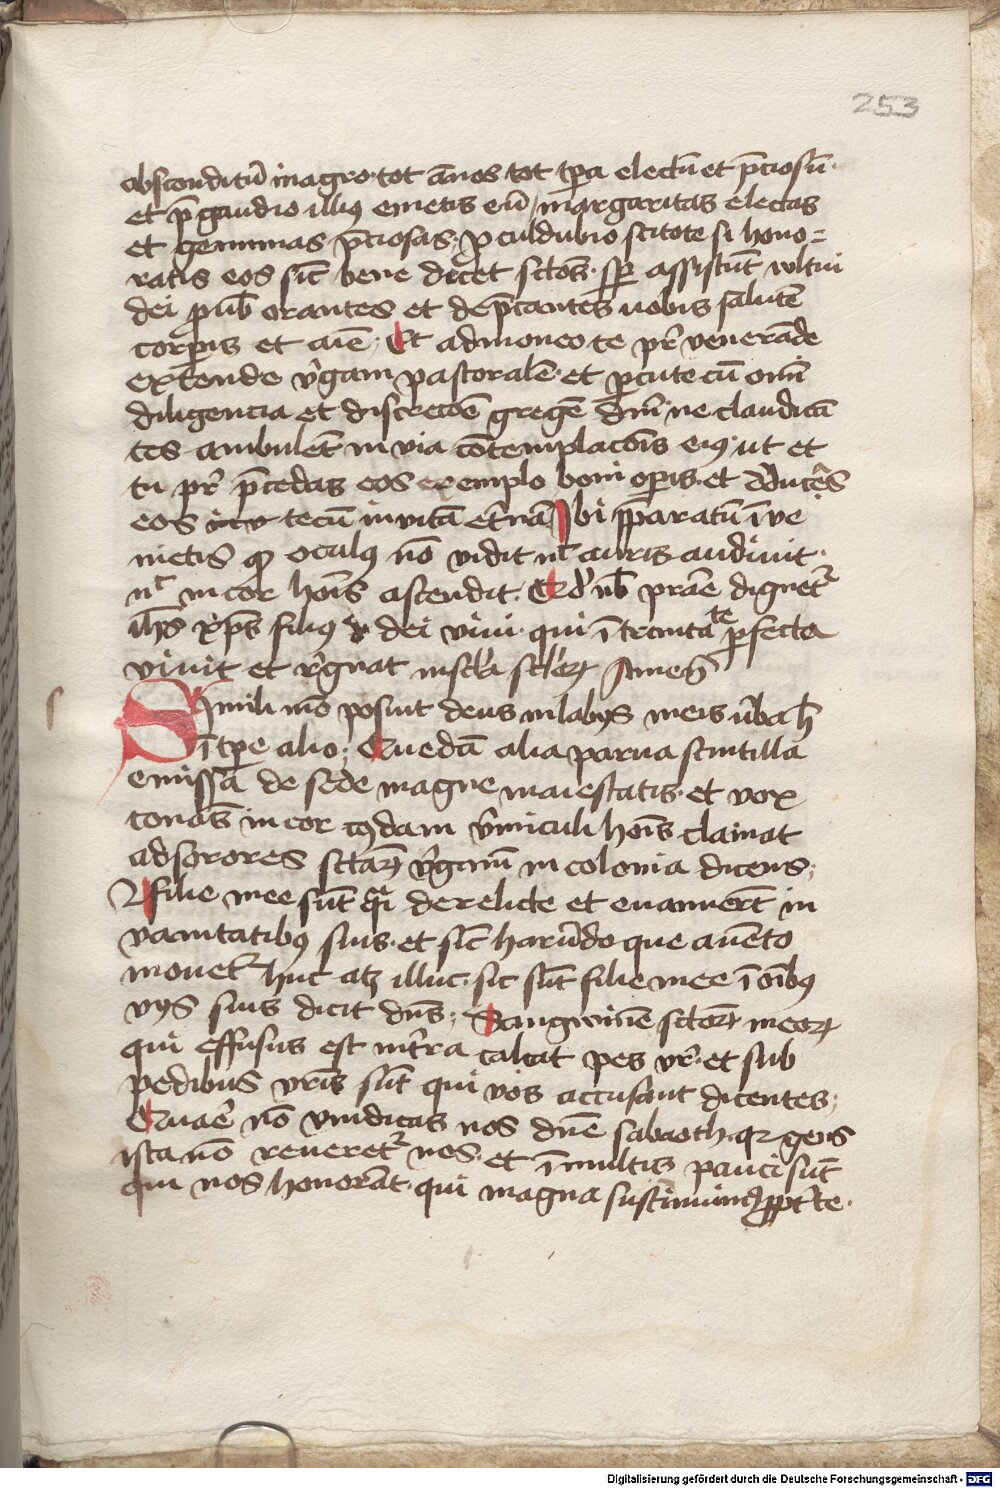 253
absconditū in agro· tot ānos tot tp̄a electū et p̄ciosū·
et p̄ gaudio illiꝰ emetis eū / margaritas electas
et gemmas p̄ciosas· ꝓculdubio scitote si hono=
ratis eos sic̄ bene dicet sctōs· sp̄ assistūt vltui
dei ꝓ uob̄ orantes et dep̄cantes uobis salutē
corꝑis et aīe· Et admoneo te pr̄ venerāde
extende v̄gam pastoralē· et ꝑcute cū om̄i
diligencia et discrecōe gregē dn̄i· ne claudicā
tes ambulēt in via cōtemplacōis eiꝰ· ut et
tu pr̄ p̄cedas eos exemplo boni oꝑis· et dducēs
eos tecū in vitā et̄nā Ibi p̄paratū īve
nietis qꝫ oculꝰ nō vidit nᶜ auris audiuit·
nᶜ in cor hoīs ascendit· Qd' nob̄ p̄stare dignet᷑
ih̄s xp̄s filiꝰ dei viui· qui ī trinita te ꝑfecta
viuit et r̄gnat in sc̄la sc̄loꝝ Amen
Simili mō posuit deus in labijs meis ūba h̄
ī tp̄e alio; Quedā alia parua scintilla
emissa de sede magne maiestatis· et vox
tonās in cor cꝰdam v̄miculi hoīs clamat
ad sorores sctāꝝ v̄ginū in colonia dicens;
filie mee sūt q̄si derelicte et euanuerūt in
vanitatibꝰ suis· et sic̄ harūdo que a uēto
mouet᷑ huc atqꝫ illuc· sic sūt filie mee ī oībꝰ
vijs suis dicit dn̄s; Sanguinē sctōꝝ meoꝝ
qui effusus est in t̄ra calcat pes vr̄· et sub
pedibus vr̄is sūt qui vos accusant dicentes;
Quare nō vindicas nos dn̄e sabaoth· qꝛ gens
ista nō reueret᷑ nos· et ī multis pauci sūt
qui nos honorāt· qui magna sustinuimꝰ ꝓpt̄ te·
Digitalisierung gefördert durch die Deutsche Forschungsgemeinschaft - DFG